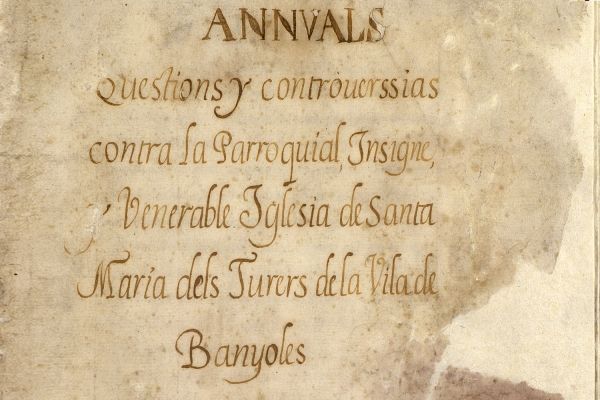 ANNVALS
Questions y controuerssias
contra la Parroquial, Insigne,
y Venerable Iglesia de Santa
María dels Turers de la Vila de
Banyoles